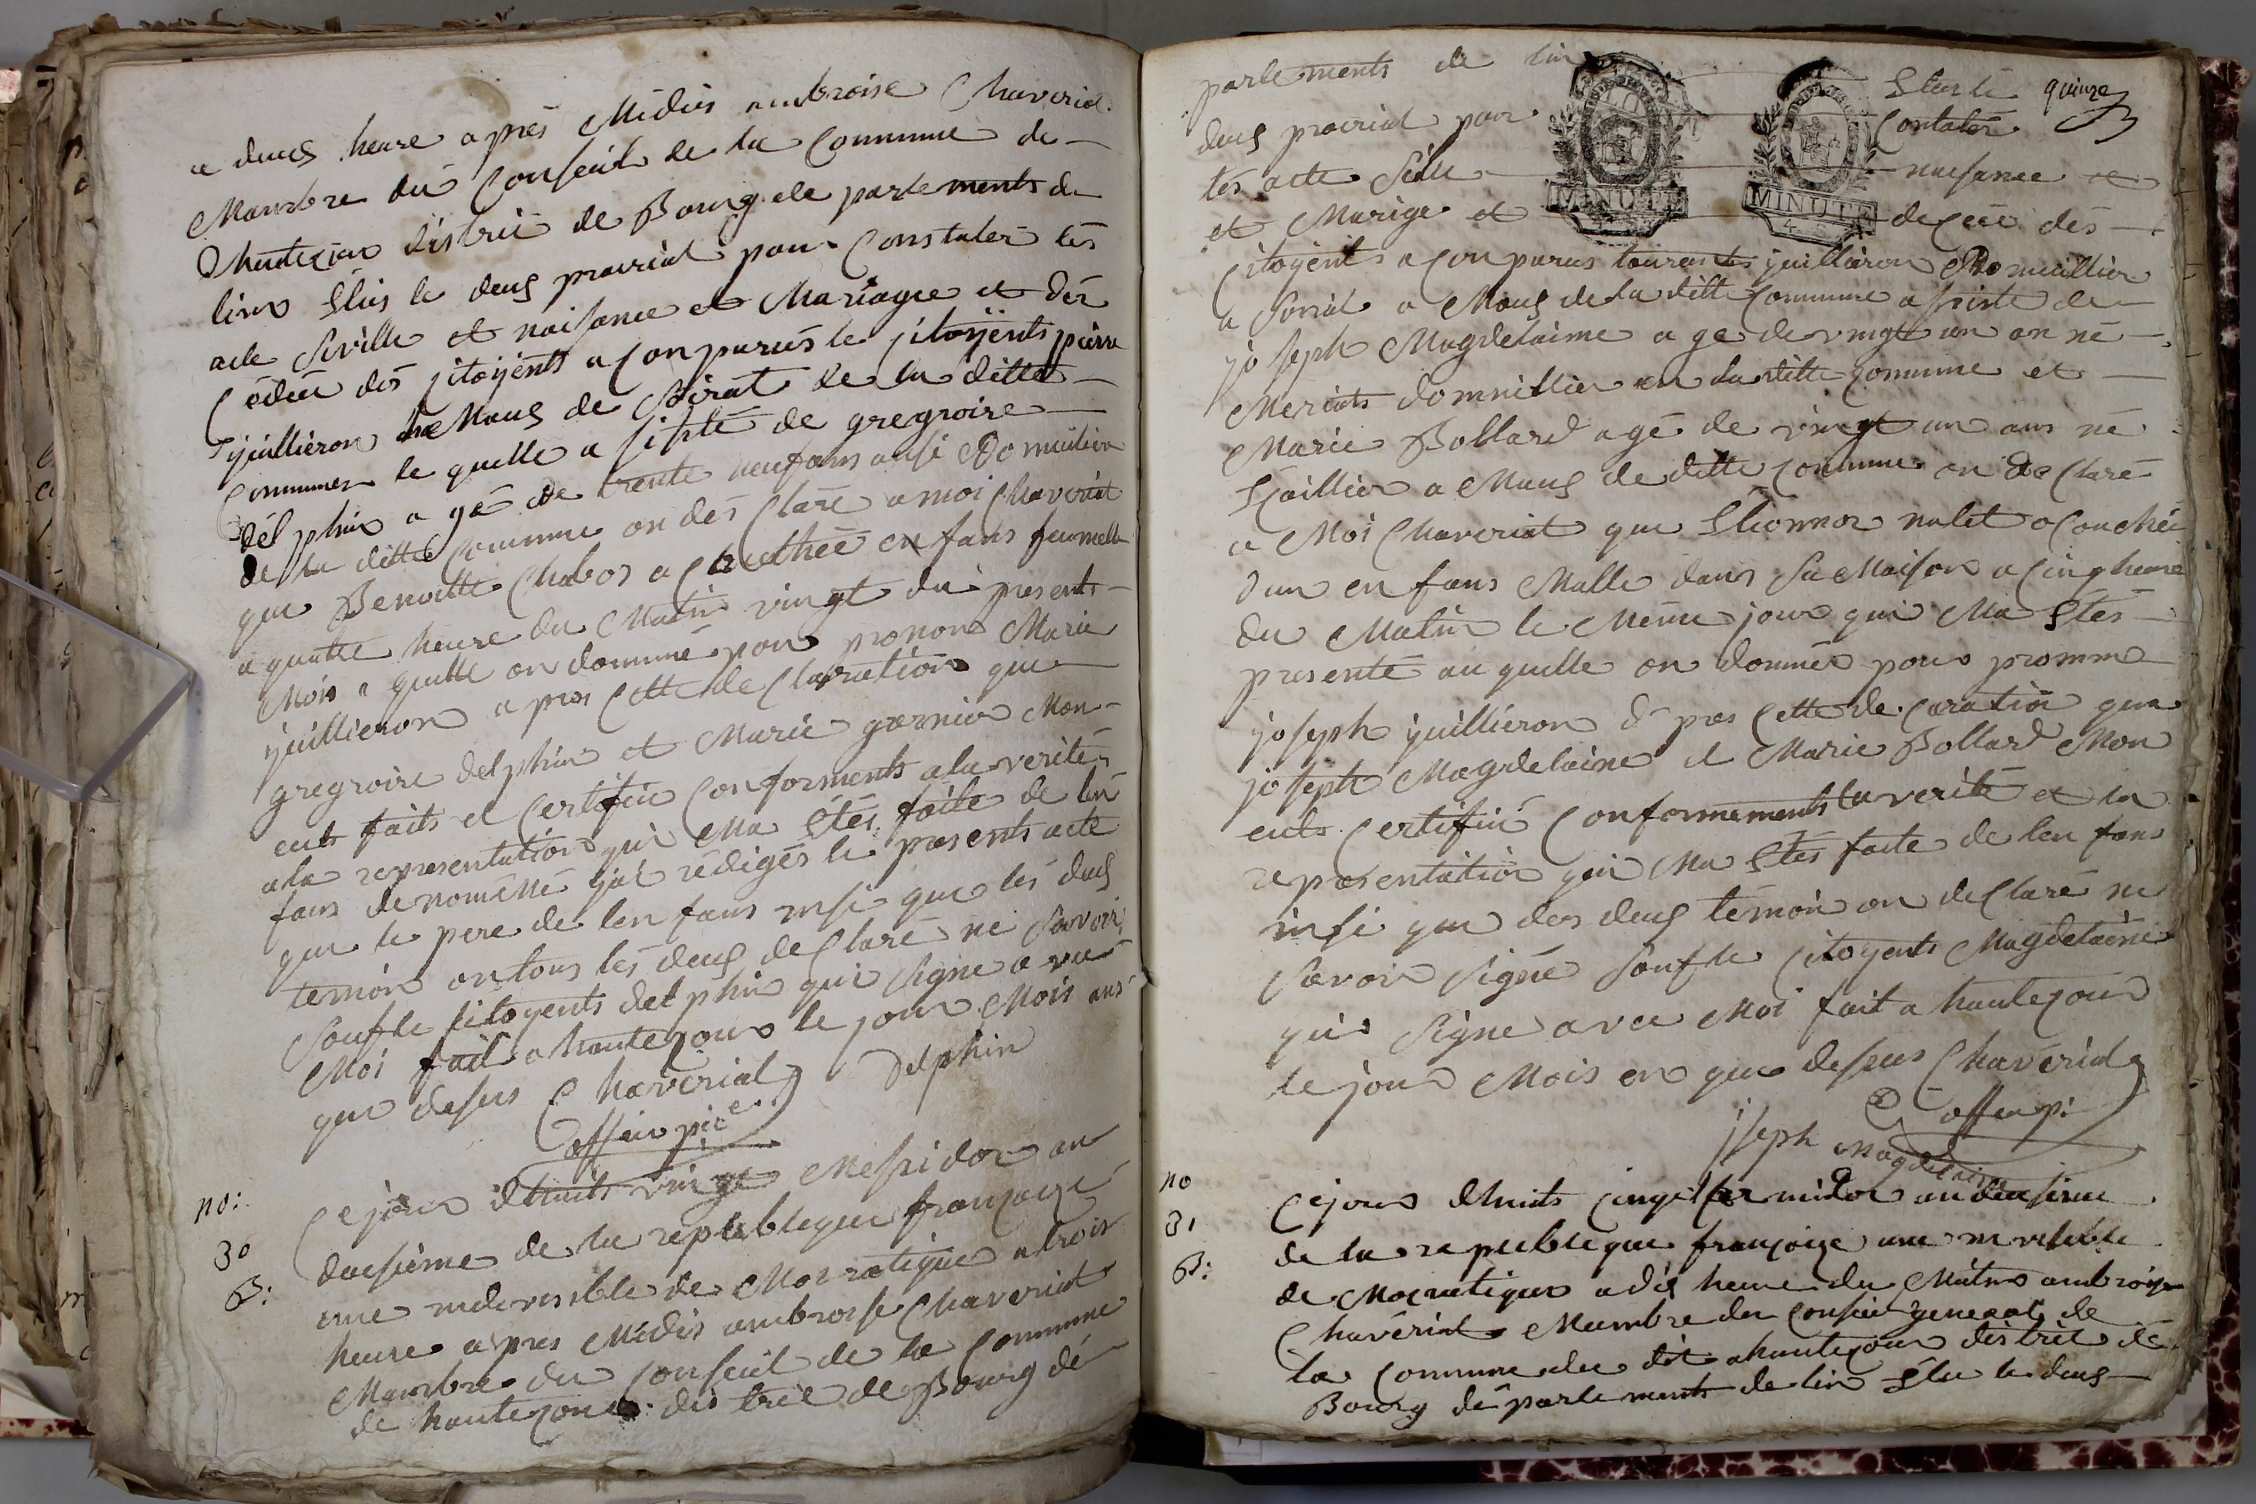 a deus heure apres Midis ambroise Chaveriat
Manbre du Conseil de la Commune de
hautejou district de Bourg de partements de
linn Elus le deus prairial pour Constater les
acte Siville et naisance et Mariague et
des jitoÿents a Conparus le jitoÿents pierre
juillieron a Maus de de la ditte
Commune le quelle a sisté de gregroire
délphin a gé de trente neuf ans ausi Domicilier
de la ditte Commune on dés Clare a moi Chaveriat
que Benoitte Chabos a en fans feumelle
a quatre heure du Matin vingt du presents
Mois a quelle on donnné pour pronom Marie
juillieron a pres Cette de Claration que
gregroire delphin et Marie garnier Mon
ents faits et Certifier Conforments a la verité
a la representation qui Ma Etés faite de len
fans de nomémé jai rédigés le presents acte
que le pere de len fans insi que lés deus
temoin on tous lés deus de Claré ne Savoir
Souf le sitoyents delphin qui Signe a vec
Moi fait a hautejour le jour Mois ans
que desus Chaverial delphin
offier pic
no: Cejour dhuits vingt Mesidor an
30 deusieme de la republeque françoise
B: une indevisible de Mocratique a trois
heure a pres Midis ambroise Chaveriat
Manbre du Conseil de la Commune
de hautejour distrie de Bourg dé
partements de lin Elus le quinze
deus prairial pour Constater
lés acte Sille naisance et
et Marige et des
Citoyents a Conparus lourents juilliron Domicillier
a a Maus de la ditte Commune a siste de
joseph Magdelaine a gé de vingt un an né
domnillier en la ditte Comune et
Marie Bollard agé de vingt un ans né
a Maus de ditte Commune on de Claré
a Moi Chaveriat que Elionnor nalet a Couché
dun en fans Malle dans Sa Maison a Cinq heure
du Matin le Mème jour qui Ma Etés
presenté au quelle on donnér pour promme
joseph juillieron d pres Cette de Caration que
joseph Magdelaine et Marie Bollard Mon
ents Certifiié Conformements la verité et la
representation qui Ma Etés faite de len fans
insi que des deus témoin on de Claré ne
Savoir Signé Souf le Citoyents Magdelaine
qui Signe avec Moi fait a hautejour
le jour Mois en que desus Chaverial
offier pi
jseph Magdelaine
MINUTE
MINUTE
4 S
no Cejour dhuits Cinq termidor an deusieme
31 de la republeque françoize une indevisible
B: de Mocratique a dis heure du Matin ambroise
Chavériat Manbre du Conseil general de
la Commune du dit a hautejour distrit dé
Bourg dé partements de lin Elu le deus